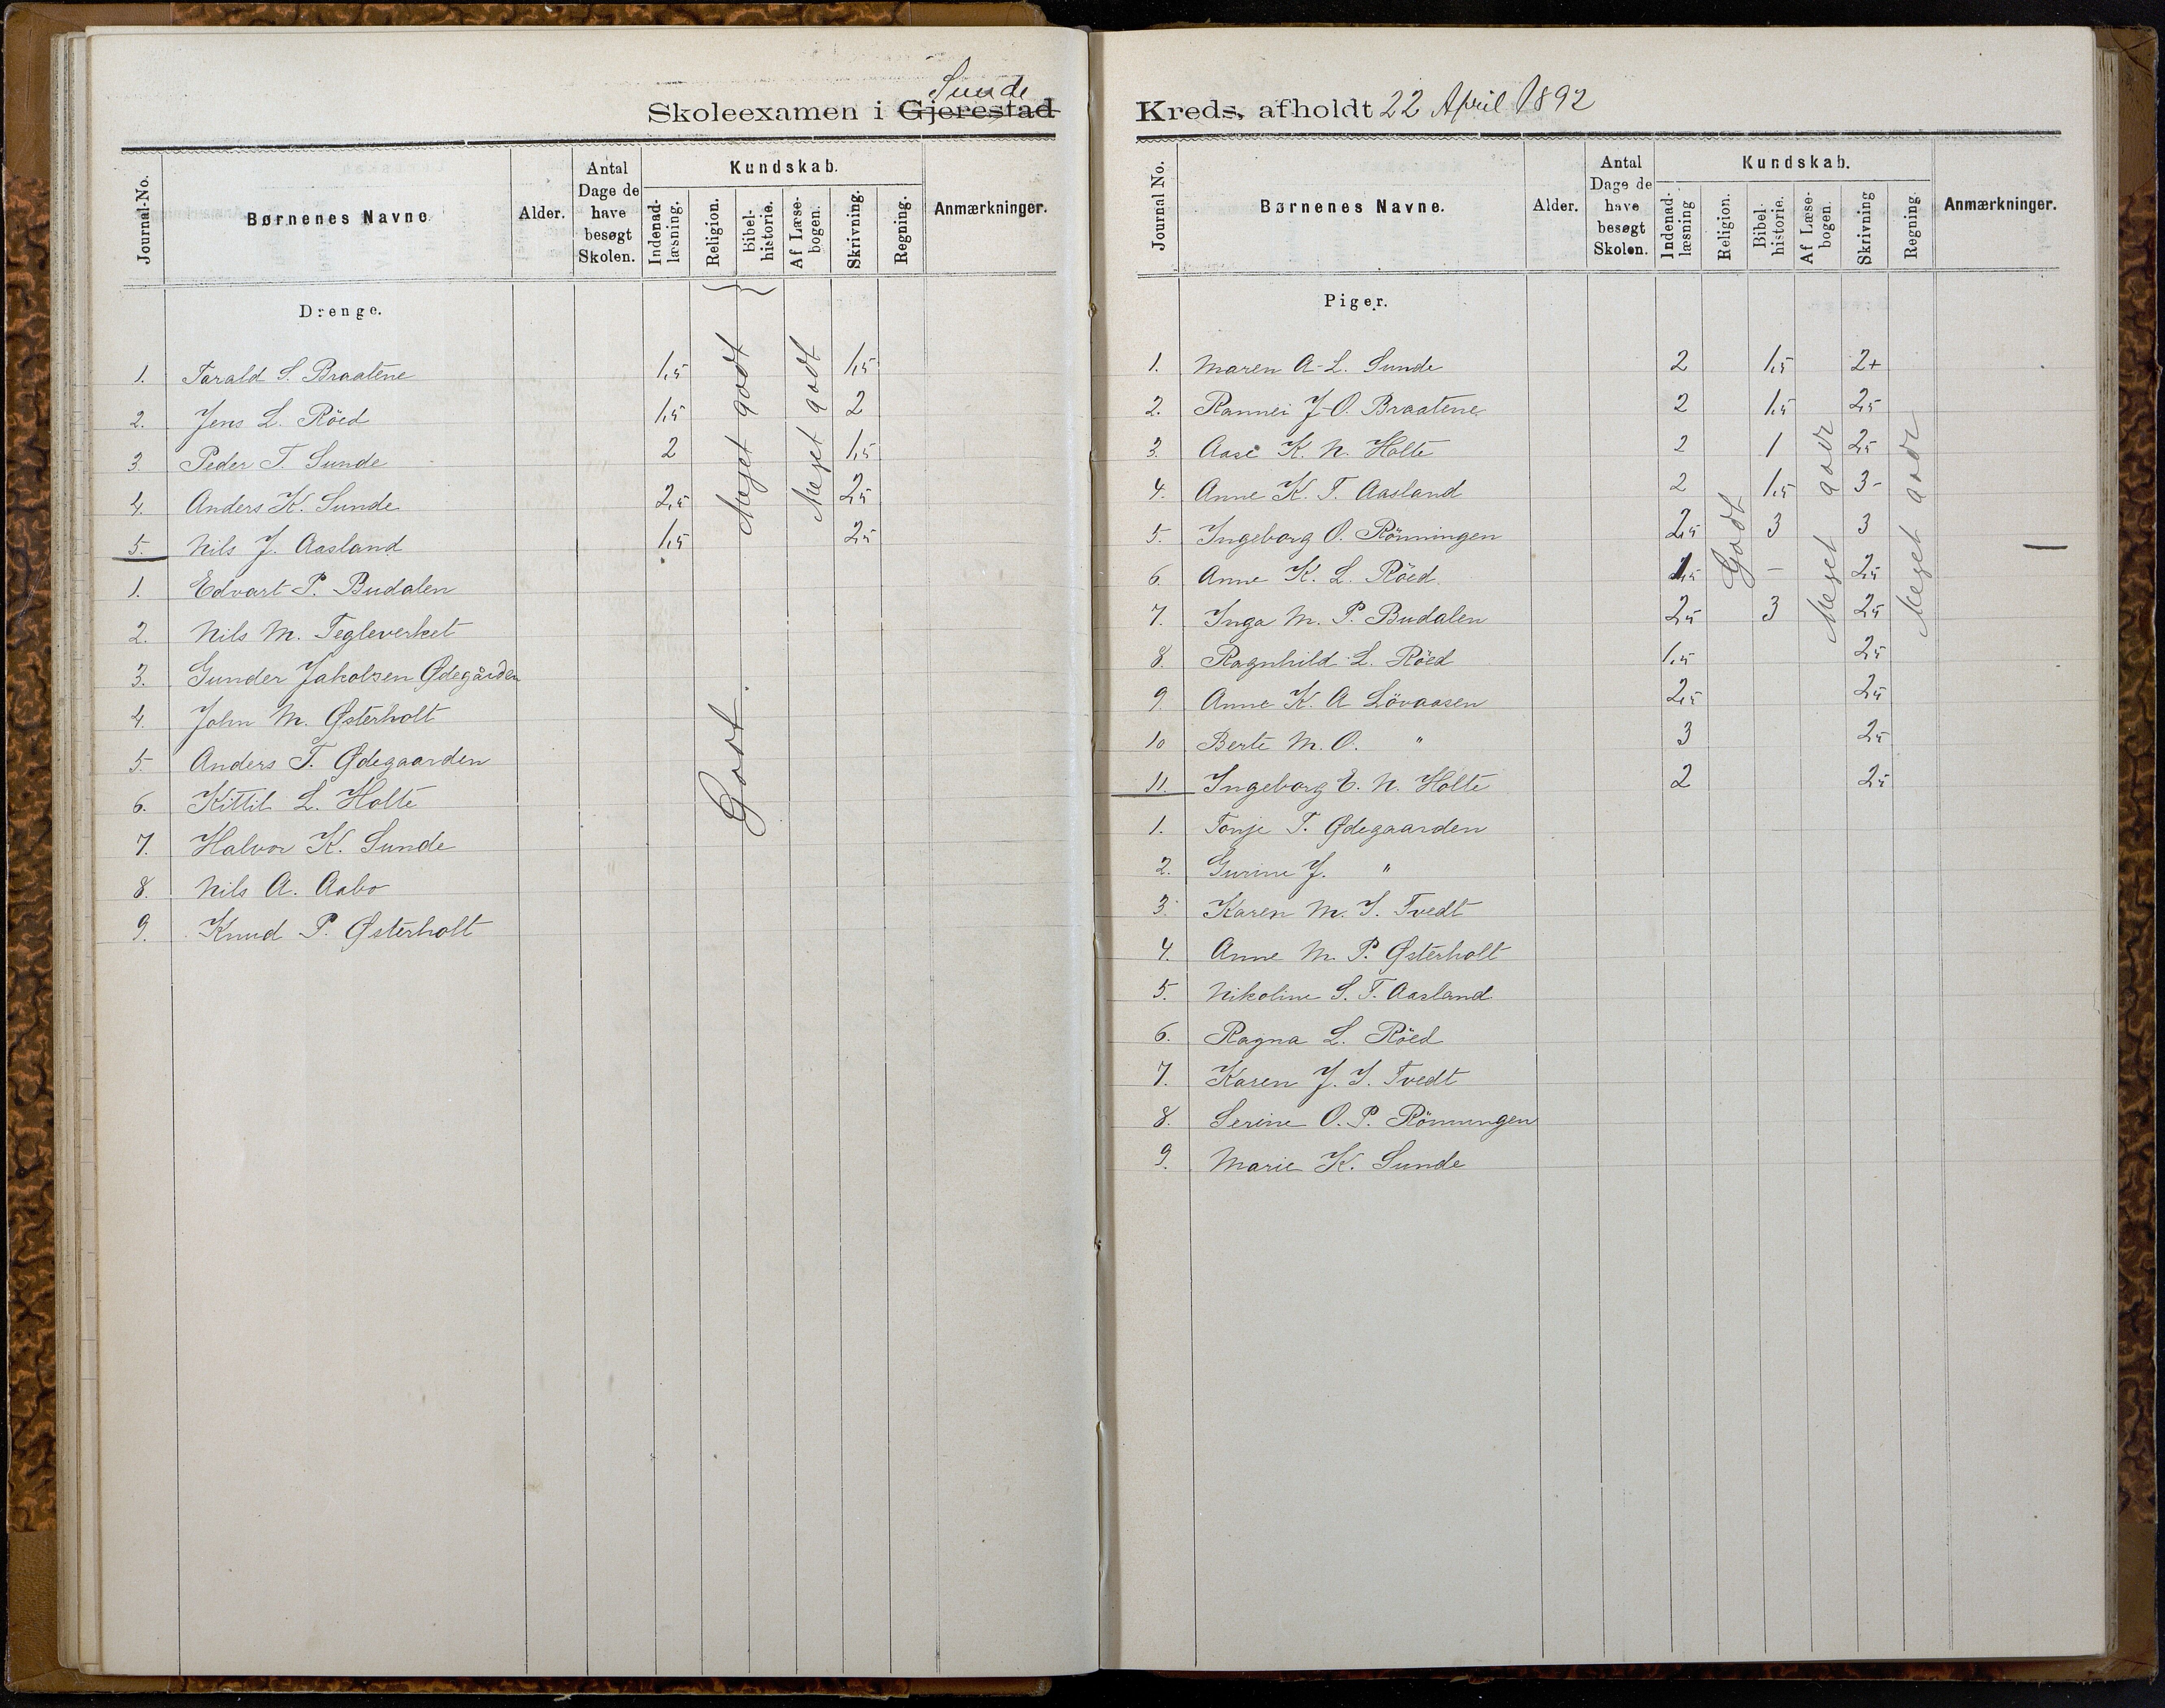 Sunde
Skoleexamen i Gjerestad
Journal-No.
Børnenes Navne.
Alder.
Antal Dage de have besøgt Skolen.
Kundskab.
Indenad-læsning.
Religion.
Bibel-historie.
Af Læse-bogen.
Skrivning.
Regning.
Anmærkninger.
Drenge.
1. Tarald S. Braatene 1,5 1,5
2. Jens L. Röed 1,5 2
3. Peder T. Sunde 2 1,5
4. Anders K. Sunde 2,5 2,5
5. Nils J. Aasland 1,5 2,5
Meget godt
Meget godt
1. Edvart P. Budalen
2. Nils M. Tegleverket
3. Gunder Jakobsen Ødegården
4. John M. Østerholt
5. Anders T. Ødegaarden
6. Kittil L. Holte
7. Halvor K. Sunde
8. Nils A. Aabo
9. Knud P. Østerholt
Godt.
Kreds, afholdt 22 April 1892
Journal No.
Børnenes Navne.
Alder.
Antal Dage de have besøgt Skolen.
Kundskab.
Indenad-læsning
Religion.
Bibel-historie.
Af Læse-bogen.
Skrivning
Regning.
Anmærkninger.
Piger.
1. Maren A-L. Sunde 2 1,5 2+
2. Rannei J-O. Braatene 2 1,5 2,5
3. Aase K. N. Holte 2 1 2,5
4. Anne K. T. Aasland 2 1,5 3-
5. Ingeborg O. Rönningen 2,5 3 3
6. Anne K. L. Röed 1,5 - 2,5
7. Inga M. P. Budalen 2,5 3 2,5
8. Ragnhild L. Röed 1,5 2,5
9. Anne K. A Lövaasen 2,5 2,5
10 Berte M. O. " 3 2,5
11. Ingeborg E. N. Holte 2 2,5
Godt
Meget godt
Meget godt
1. Tonje T. Ødegaarden
2. Gurine J. "
3. Karen M. S. Tvedt
4. Anne M. P. Østerholt
5. Nikoline S. T. Aasland
6. Ragna L. Röed
7. Karen J. S. Tvedt
8. Serine O. P. Rönningen
9. Marie K. Sunde